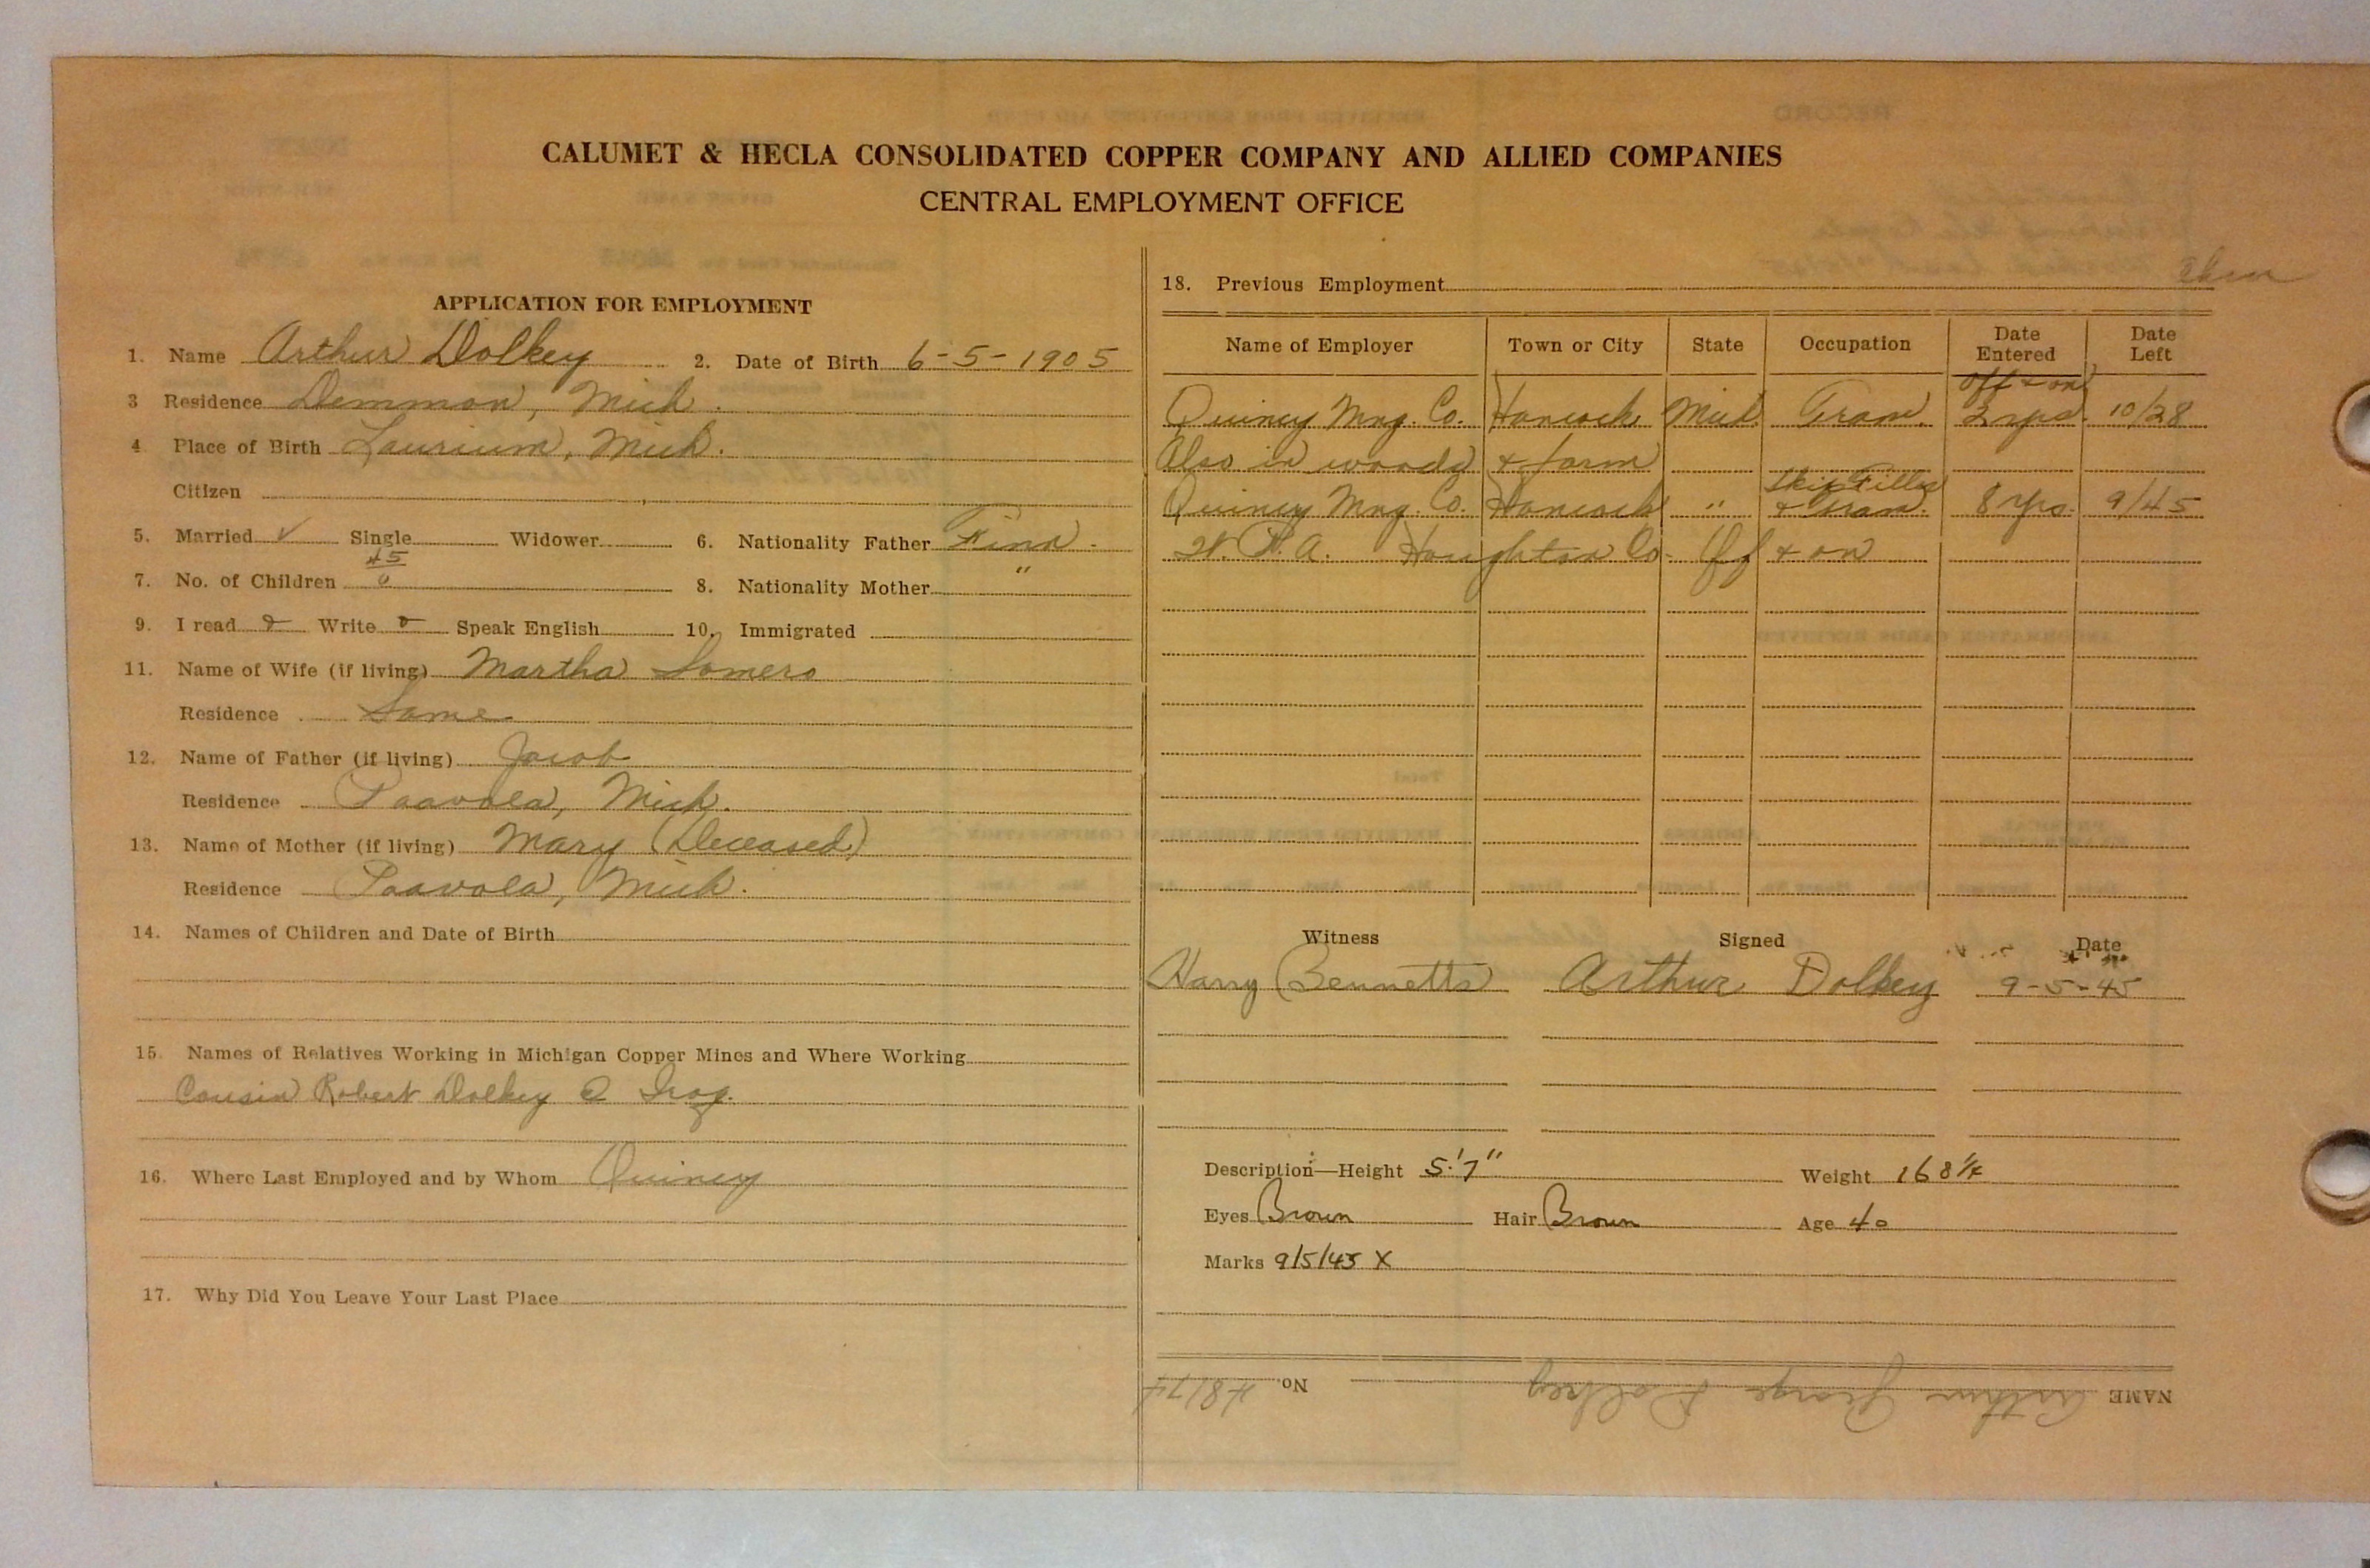 CALUMET & HECLA CONSOLIDATED COPPER COMPANY AND ALLIED COMPANIES
CENTRAL EMPLOYMENT OFFICE
APPLICATION FOR EMPLOYMENT
1. Name Arthur Dolkey 2. Date of Birth 6-5-1905
3 Residence Demmon, Mich.
4 Place of Birth Laurium, Mich.
Citizen
5. Married ✓ Single Widower 6. Nationality Father Finn.
45
7. No. of Children 0 8. Nationality Mother "
9. I read Write Speak English 10. Immigrated
11. Name of Wife (if living) Martha Somero
Residence Same
12. Name of Father (if living) Jacob
Residence Paavola, Mich.
13. Name of Mother (if living) Mary (Deceased)
Residence Paavola, Mich.
14. Names of Children and Date of Birth
15. Names of Relatives Working in Michigan Copper Mines and Where Working
Cousin Robert Dolkey
16. Where Last Employed and by Whom Quincy
17. Why Did You Leave Your Last Place
18. Previous Employment
Name of Employer Town or City State Occupation Date Entered Date Left
off & on
Quincy Mng. Co. Hancock Mich. Tram. 10/28
Also in woods & farm
Skip Filler
Quincy Mng. Co. Hancock " & Tram. 8 yrs. 9/45
W. P. A. Houghton Co. Off & on
Witness Signed Date
Harry Bennetts Arthur Dolkey 9-5-45
Description—Height 5'7" Weight 168¼
Eyes Brown Hair Brown Age 40
Marks 9/5/45 X
NAME Arthur George Dolkey No. 48174